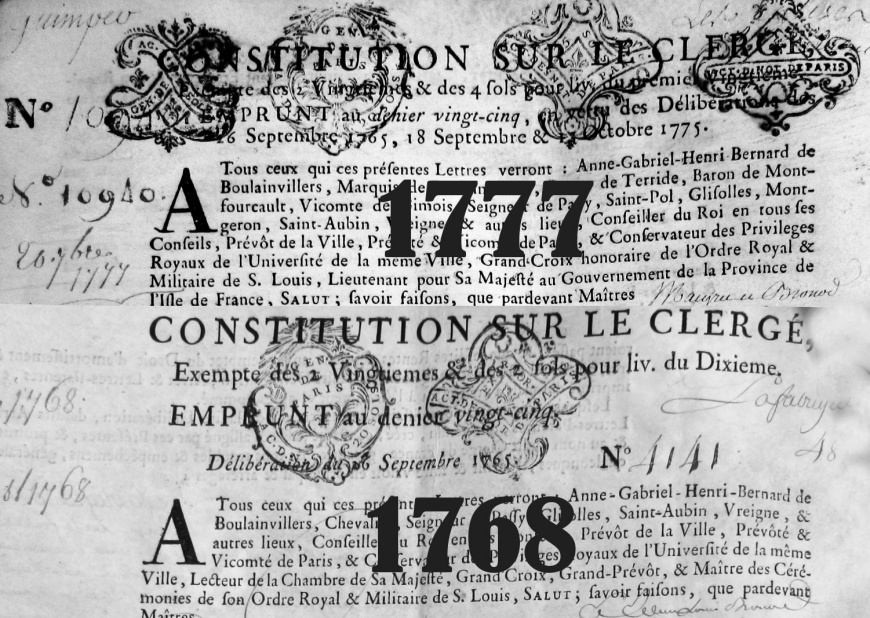 CONSTITUTION SUR LE CLERGÉ,
Vingtiemes & des 4 ſols pour liv. du premier
Nº EMPRUNT au denier vingt-cinq, en vertu des Délibérations des
16 Septembre 1765, 18 Septembre & Octobre 1775.
Nº 10940.
A Tous ceux qui ces préſentes Lettres verront : Anne-Gabriel-Henri-Bernard de
Boulainvillers, Marquis de Terride, Baron de Mont-
fourcault, Vicomte de Seigneur de Paſſy, Saint-Pol, Gliſolles, Mont-
geron, Saint-Aubin, Vreigne, & autres lieux, Conſeiller du Roi en tous ſes
1777
Conſeils, Prévôt de la Ville, Prévôté & Vicomté de Paris, & Conſervateur des Privileges
Royaux de l'Univerſité de la même Ville, Grand-Croix honoraire de l'Ordre Royal &
1777
Militaire de S. Louis, Lieutenant pour Sa Majeſté au Gouvernement de la Province de
l'Iſle de France, SALUT ; ſavoir faiſons, que pardevant Maîtres
CONSTITUTION SUR LE CLERGÉ,
Exempte des 2 Vingtiemes & des 2 ſols pour liv. du Dixieme.
1768
EMPRUNT au denier vingt-cinq.
Délibération du 16 Septembre 1765.
Nº 4141
1768
A Tous ceux qui ces préſentes Lettres verront, Anne-Gabriel-Henri-Bernard de
Boulainvillers, Chevalier, Seigneur de Paſſy, Gliſolles, Saint-Aubin, Vreigne, &
1768
autres lieux, Conſeiller du Roi en ſes Conſeils, Prévôt de la Ville, Prévôté &
Vicomté de Paris, & Conſervateur des Privileges Royaux de l'Univerſité de la même
Ville, Lecteur de la Chambre de Sa Majeſté, Grand Croix, Grand-Prévôt, & Maître des Céré-
monies de ſon Ordre Royal & Militaire de S. Louis, SALUT ; ſavoir faiſons, que pardevant
Maîtres